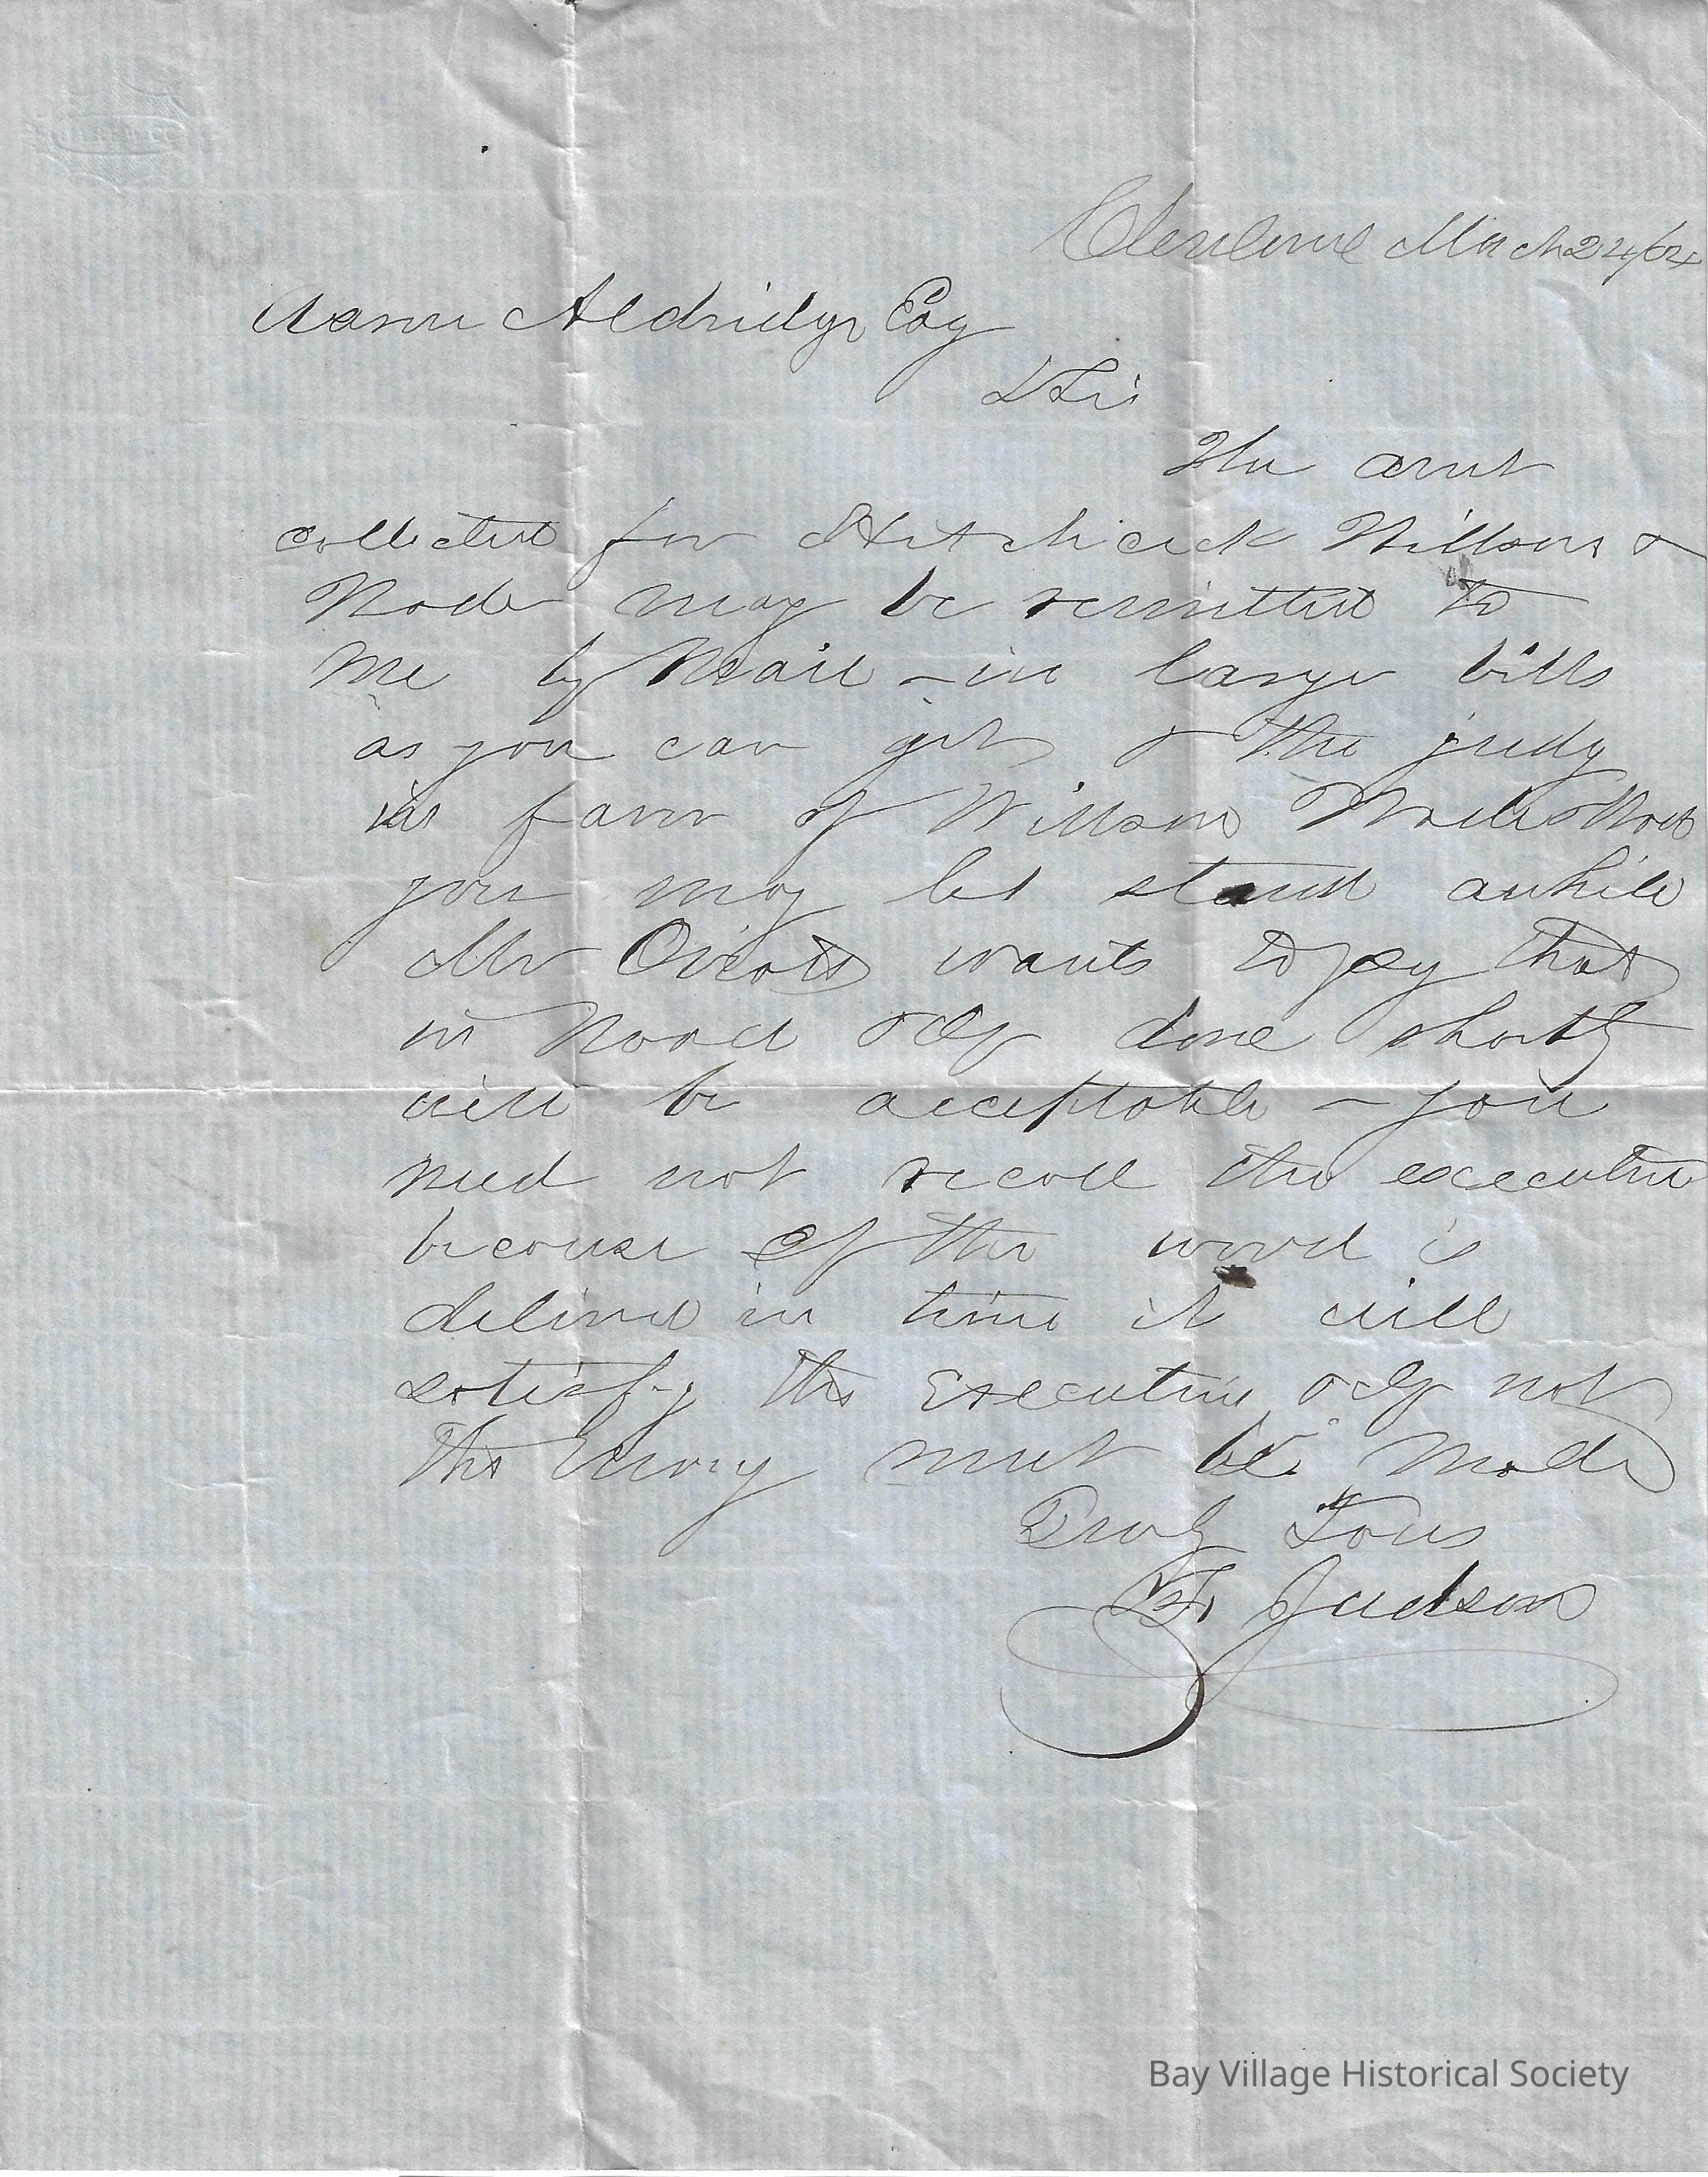 Cleveland March 24/64
Aaron Aldridge Esq
D Sir
The amt
collected for Hitchcock Willson &
Wade may be remitted to
me by Mail - in large bills
as you can get & the judg
in favor of Willson Wade &
you may let stand awhile
Mr wants to pay that
in Wood & if done shortly
will be acceptable - you
need not recall the execution
because if the wood is
delivered in time it will
satisfy the Execution & if not
the must be made
Truly Yours
F. Judson
Bay Village Historical Society